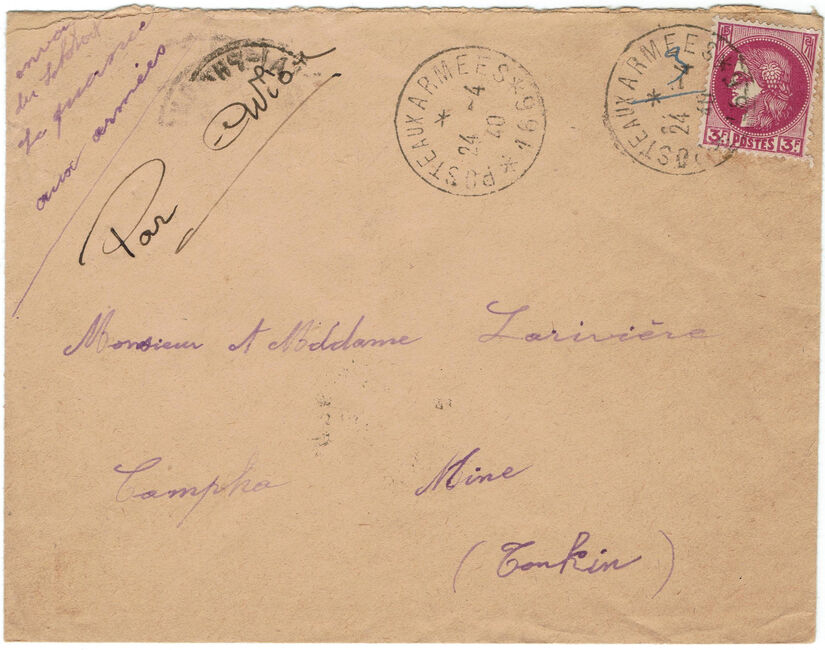 envoi
du
La guerre
aux armées
Par avion
POSTE AUX ARMEES * 166 *
24 -4 40
POSTE AUX ARMEES *
24 -4 40
3
3F POSTES 3F
Monsieur et Mddame Larivière
Campha Mine
(Tonkin)